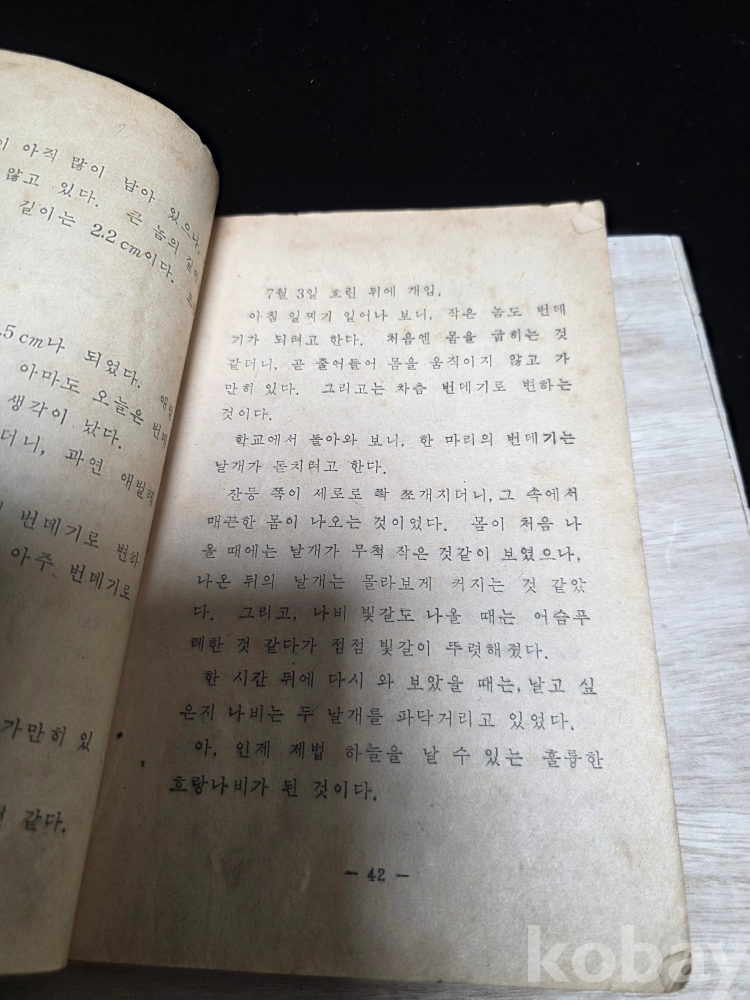 아직 많이 남아 있으나,
않고 있다. 큰 놈의 길이
길이는 2.2cm이다.
.5cm나 되었다. 애벌
아마도 오늘은 번데
생각이 났다.
더니, 과연 애벌레
번데기로 변하
아주 번데기로
가만히 있
같다.
7월 3일 흐린 뒤에 개임.
아침 일찌기 일어나 보니, 작은 놈도 번데
기가 되려고 한다. 처음엔 몸을 굽히는 것
같더니, 곧 줄어들어 몸을 움직이지 않고 가
만히 있다. 그리고는 차츰 번데기로 변하는
것이다.
학교에서 돌아와 보니, 한 마리의 번데기는
날개가 돋치려고 한다.
잔등 쪽이 세로로 짝 쪼개지더니, 그 속에서
매끈한 몸이 나오는 것이었다. 몸이 처음 나
올 때에는 날개가 무척 작은 것같이 보였으나,
나온 뒤의 날개는 몰라보게 커지는 것 같았
다. 그리고, 나비 빛갈도 나올 때는 어슴푸
레한 것 같다가 점점 빛갈이 뚜렷해졌다.
한 시간 뒤에 다시 와 보았을 때는, 날고 싶
은지 나비는 두 날개를 파닥거리고 있었다.
아, 인제 제법 하늘을 날 수 있는 훌륭한
호랑나비가 된 것이다.
— 42 —
kobay